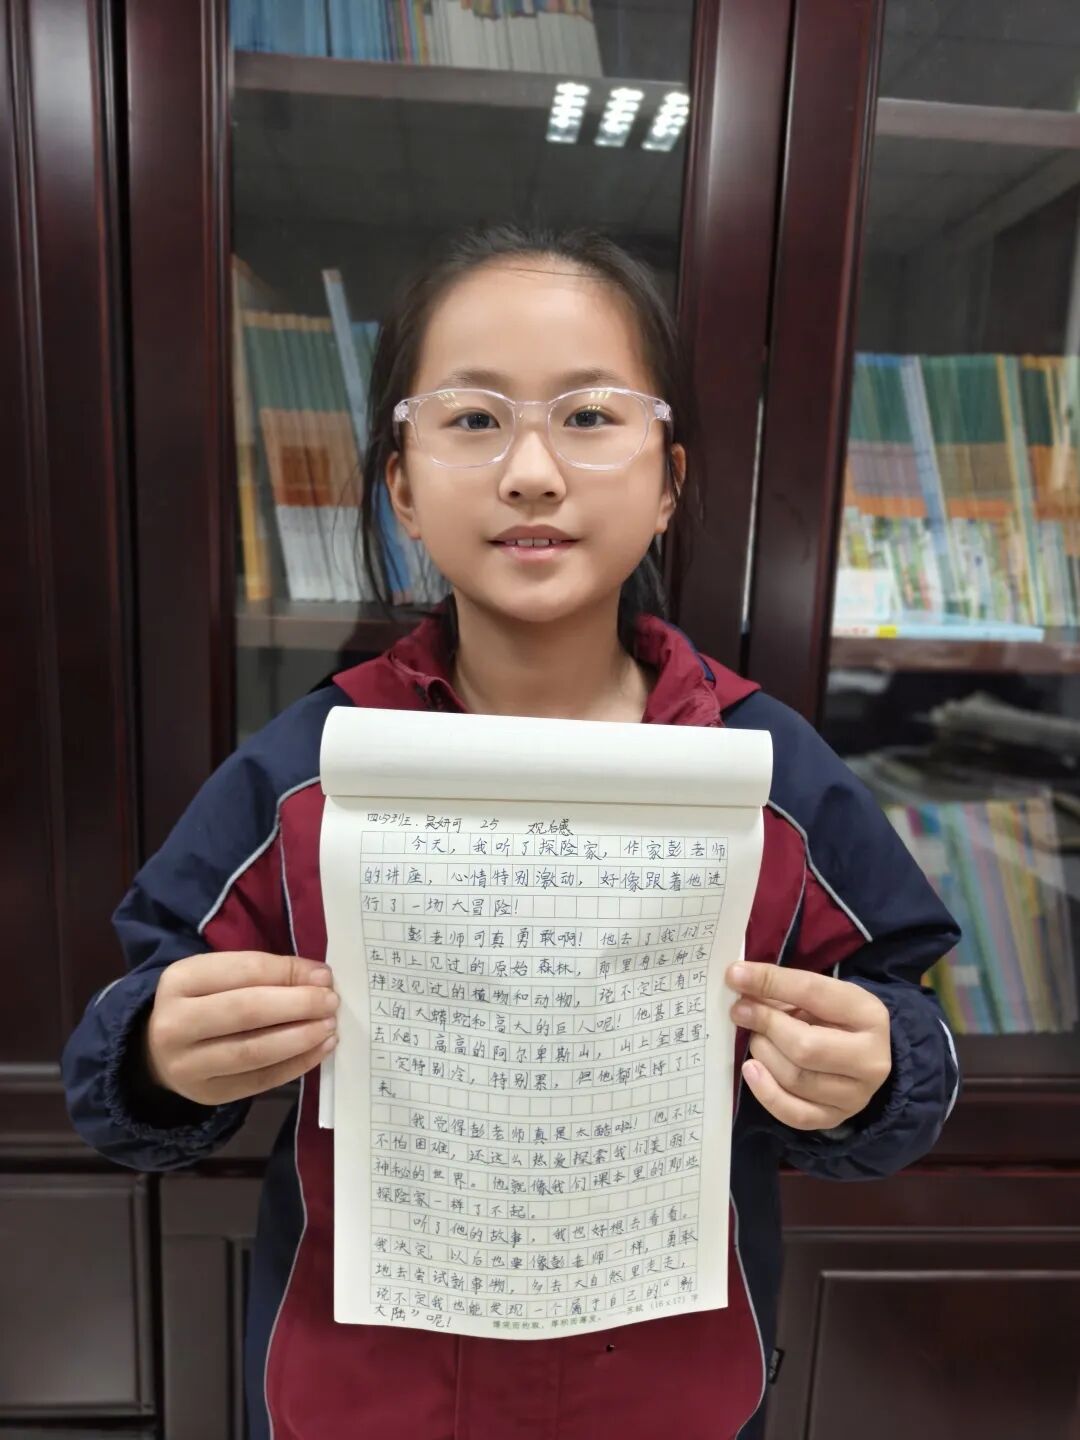 四(5)班 吴妍可 25 观后感
今天，我听了探险家，作家彭老师
的讲座，心情特别激动，好像跟着他进
行了一场大冒险！
彭老师可真勇敢啊！他去了我们只
在书上见过的原始森林，那里有各种各
样没见过的植物和动物，说不定还有吓
人的大蟒蛇和高大的巨人呢！他甚至还
去爬了高高的阿尔卑斯山，山上全是雪，
一定特别冷，特别累，但他都坚持了下
来。
我觉得彭老师真是太酷啦！他不仅
不怕困难，还这么热爱探索我们美丽又
神秘的世界。他就像我们课本里的那些
探险家一样了不起。
听了他的故事，我也好想去看看。
我决定，以后也要像彭老师一样，勇敢
地去尝试新事物，多去大自然里走走，
说不定我也能发现一个属于自己的“新
大陆”呢！
博观而约取，厚积而薄发。——苏轼 (16×17) 字